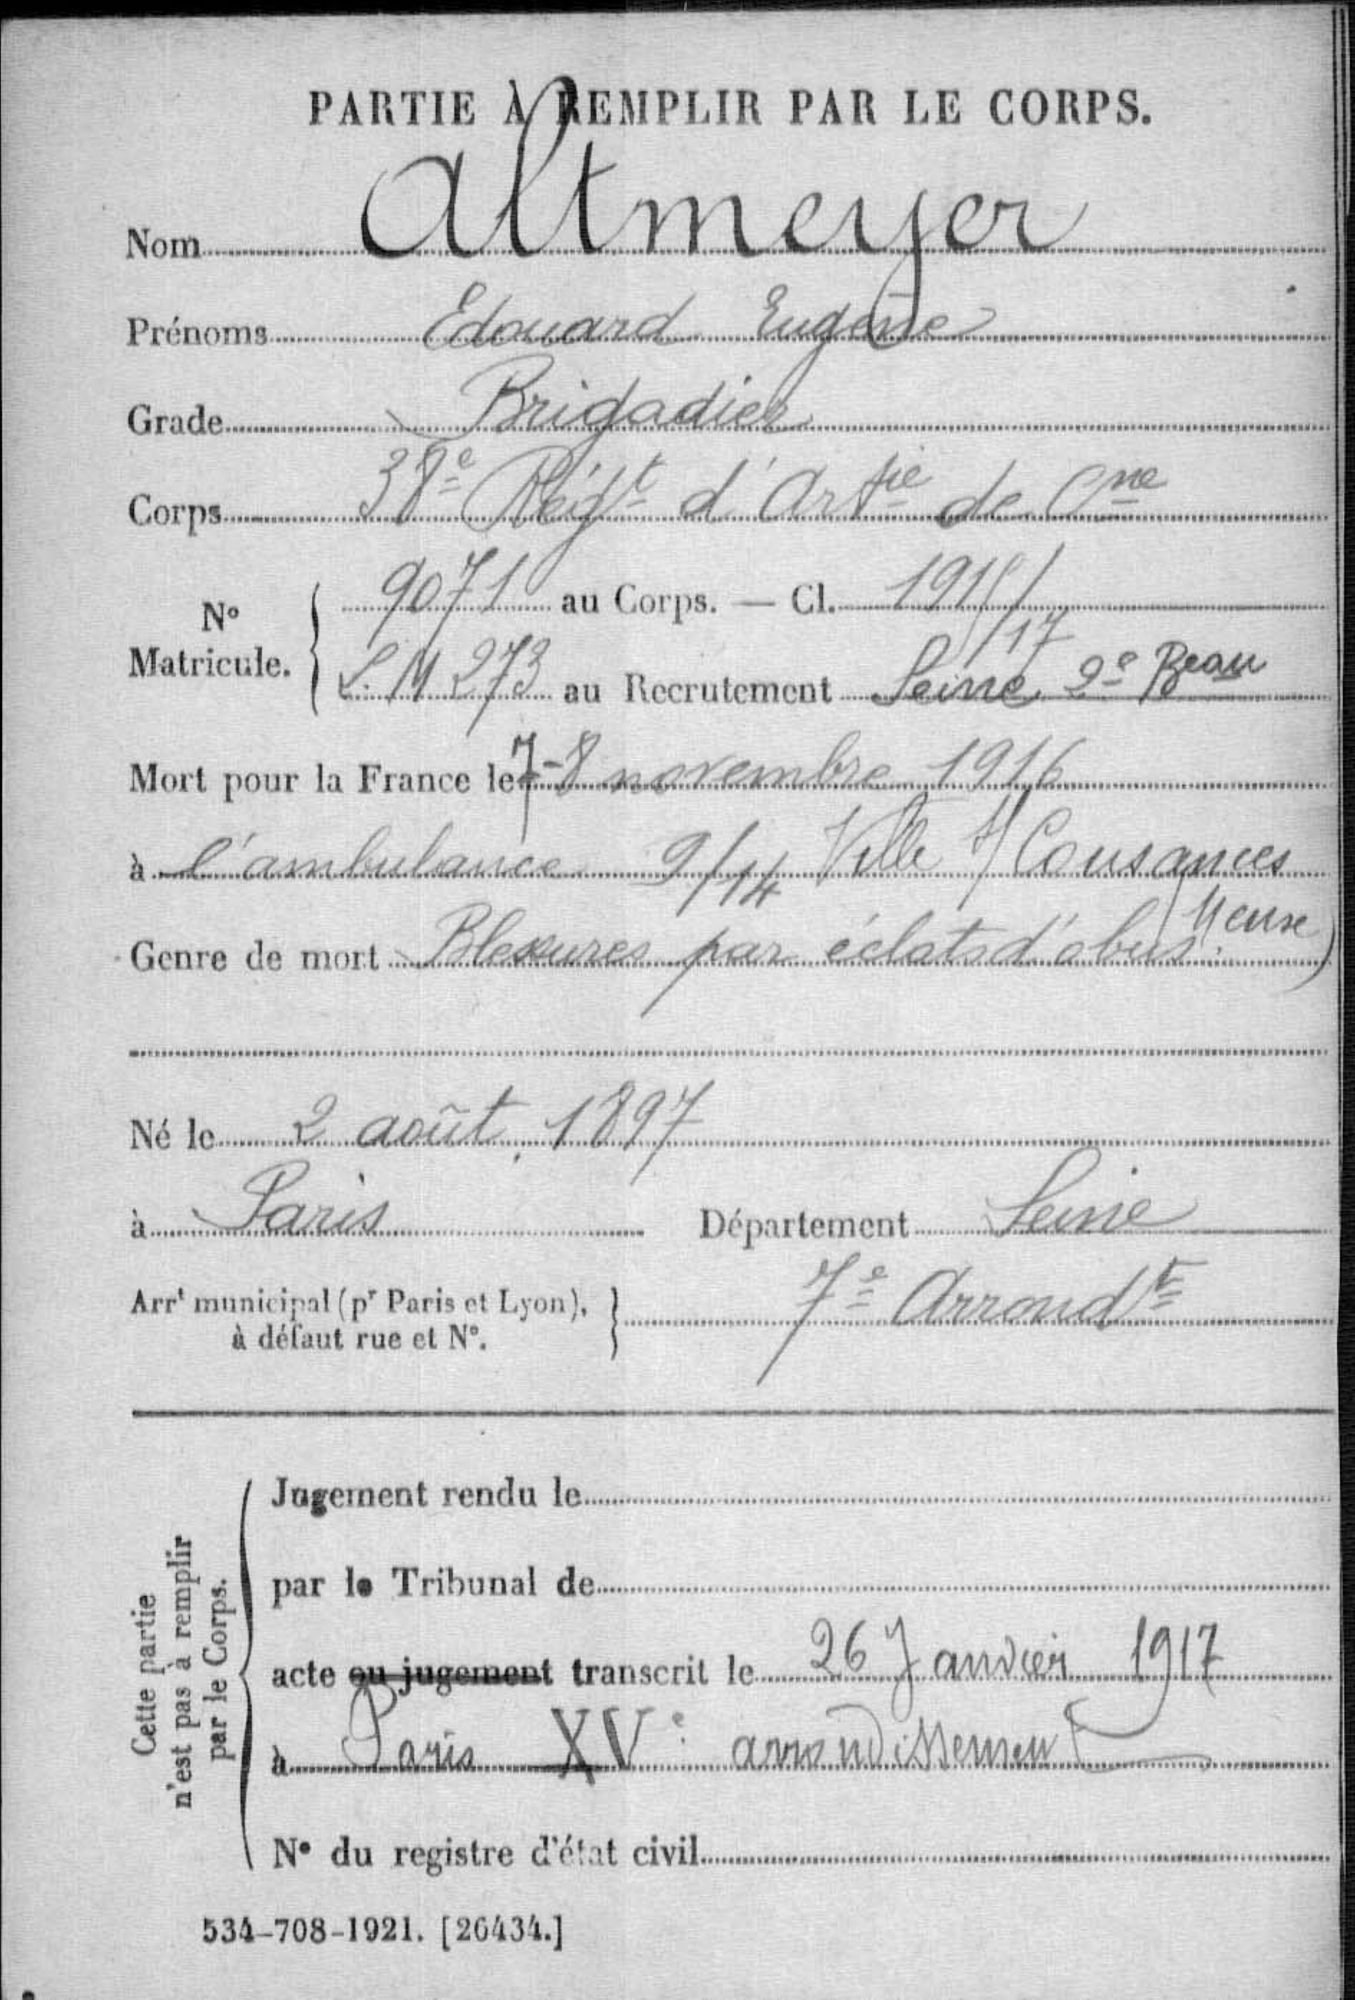 PARTIE À REMPLIR PAR LE CORPS.
Nom Altmeyer
Prénoms Edouard Eugène
Grade Brigadier
Corps 38e Régt d'Artie de Cne
No Matricule. { 9071 au Corps. — Cl. 1915/17
L.M 273 au Recrutement Seine 2e Beau
Mort pour la France le 7-8 novembre 1916
à l'ambulance 9/14 Ville s/ Cousances
(Meuse)
Genre de mort Blessures par éclats d'obus.
Né le 2 août 1897
à Paris Département Seine
Arrt municipal (pr Paris et Lyon), à défaut rue et No. } 7e Arrondt
Cette partie n'est pas à remplir par le Corps.
Jugement rendu le
par le Tribunal de
acte ou jugement transcrit le 26 Janvier 1917
à Paris XVe arrondissement
No du registre d'état civil
534-708-1921. [26434.]